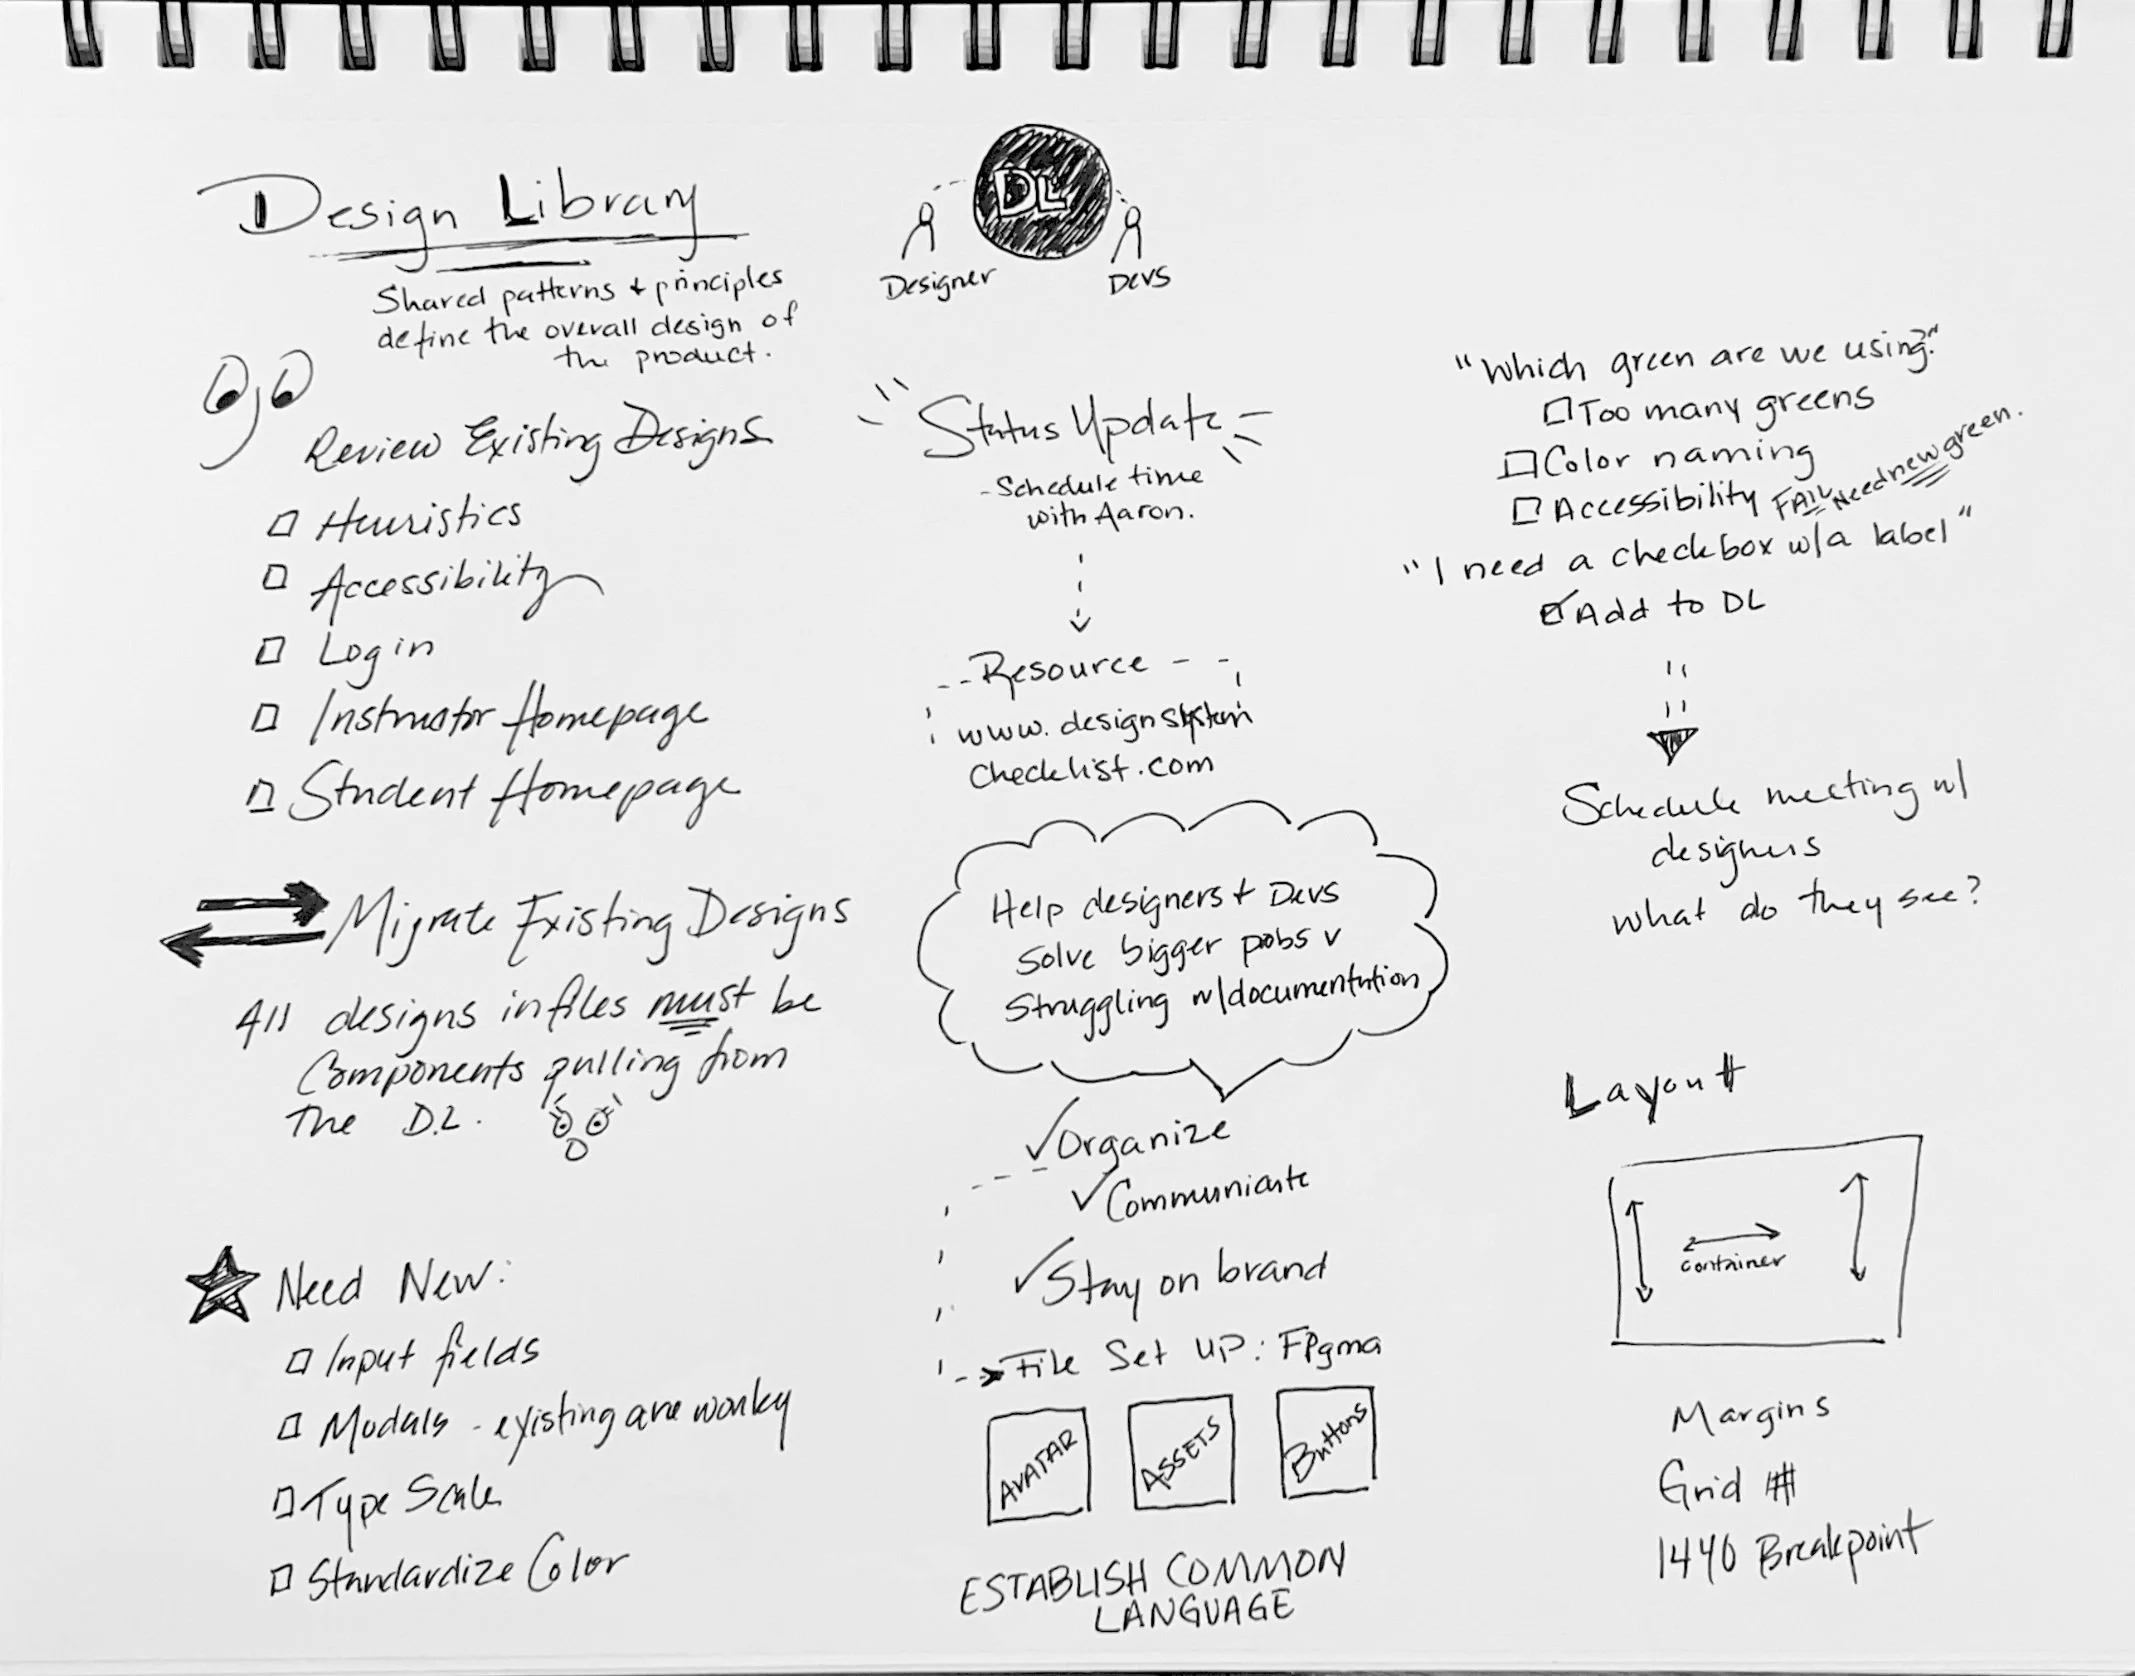 Design Library
Shared patterns + principles
define the overall design of
the product.
Review Existing Designs
Heuristics
Accessibility
Login
Instructor Homepage
Student Homepage
Migrate Existing Designs
All designs in files must be
Components pulling from
the D.L.
Need New:
Input fields
Modals - existing are wonky
Type Scale
Standardize Color
DL
Designer
Devs
Status Update
- Schedule time
with Aaron.
Resource
www.designsystem
checklist.com
Help designers + Devs
Solve bigger probs v
Struggling w/documentation
Organize
Communicate
Stay on brand
File Set Up: Figma
AVATAR
ASSETS
Buttons
ESTABLISH COMMON
LANGUAGE
"Which green are we using?"
Too many greens
Color naming
Accessibility FAIL Need new green.
"I need a checkbox w/a label"
Add to DL
Schedule meeting w/
designers
what do they see?
Layout
container
Margins
Grid #
1440 Breakpoint